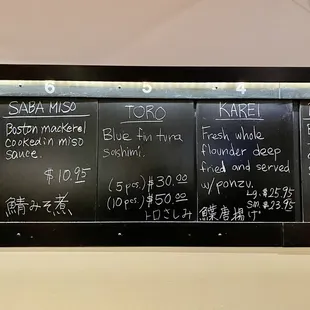 6
5
4
SABA MISO
Boston mackerel
cooked in miso
sauce.
$10.95
鯖みそ煮
TORO
Blue fin tuna
sashimi.
(5 pcs.) $30.00
(10 pcs.) $50.00
トロさしみ
KAREI
Fresh whole
flounder deep
fried and served
w/ponzu.
Lg. $25.95
Sm. $23.95
鰈唐揚げ